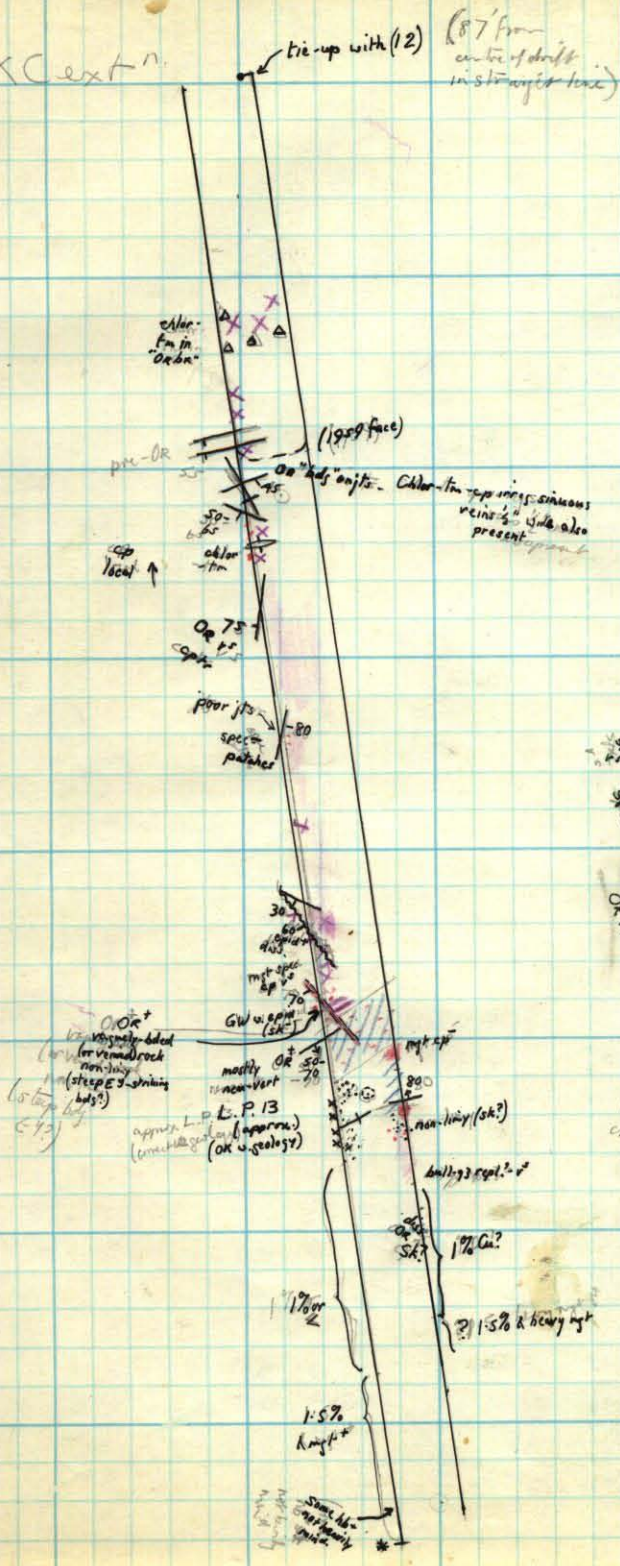 XC ext<sup>n</sup>.
tie-up with (12)
(87' from
centre of drift
in straight line)
chlor-
tm in
"OR br"
(1959 face)
pre-OR
55
OR "bds" on jts. Chlor-tm-cp irreg sinuous
veins ½" wide also
present
45
50-
65
cp
local
chlor
-tm
OR 75
poor jts
-80
spec-
patches
30
60
epid+
diss.
mgt spec
cp vs
70
GW w. epid
(sk-)
OR+
vaguely-bded
(or veined) rock
non-limy
(steep EW-striking
bdg?)
OR+
50-
70
mostly
near-vert
mgt cp
80
L.P. 13
(approx.)
(OK w. geology)
non-limy (sk?)
diss
OR
Sk?
1% Cu?
1% or
<
? 1.5% & heavy mgt
1.5%
& mgt+
Some hb-
not heavily
mind.
*